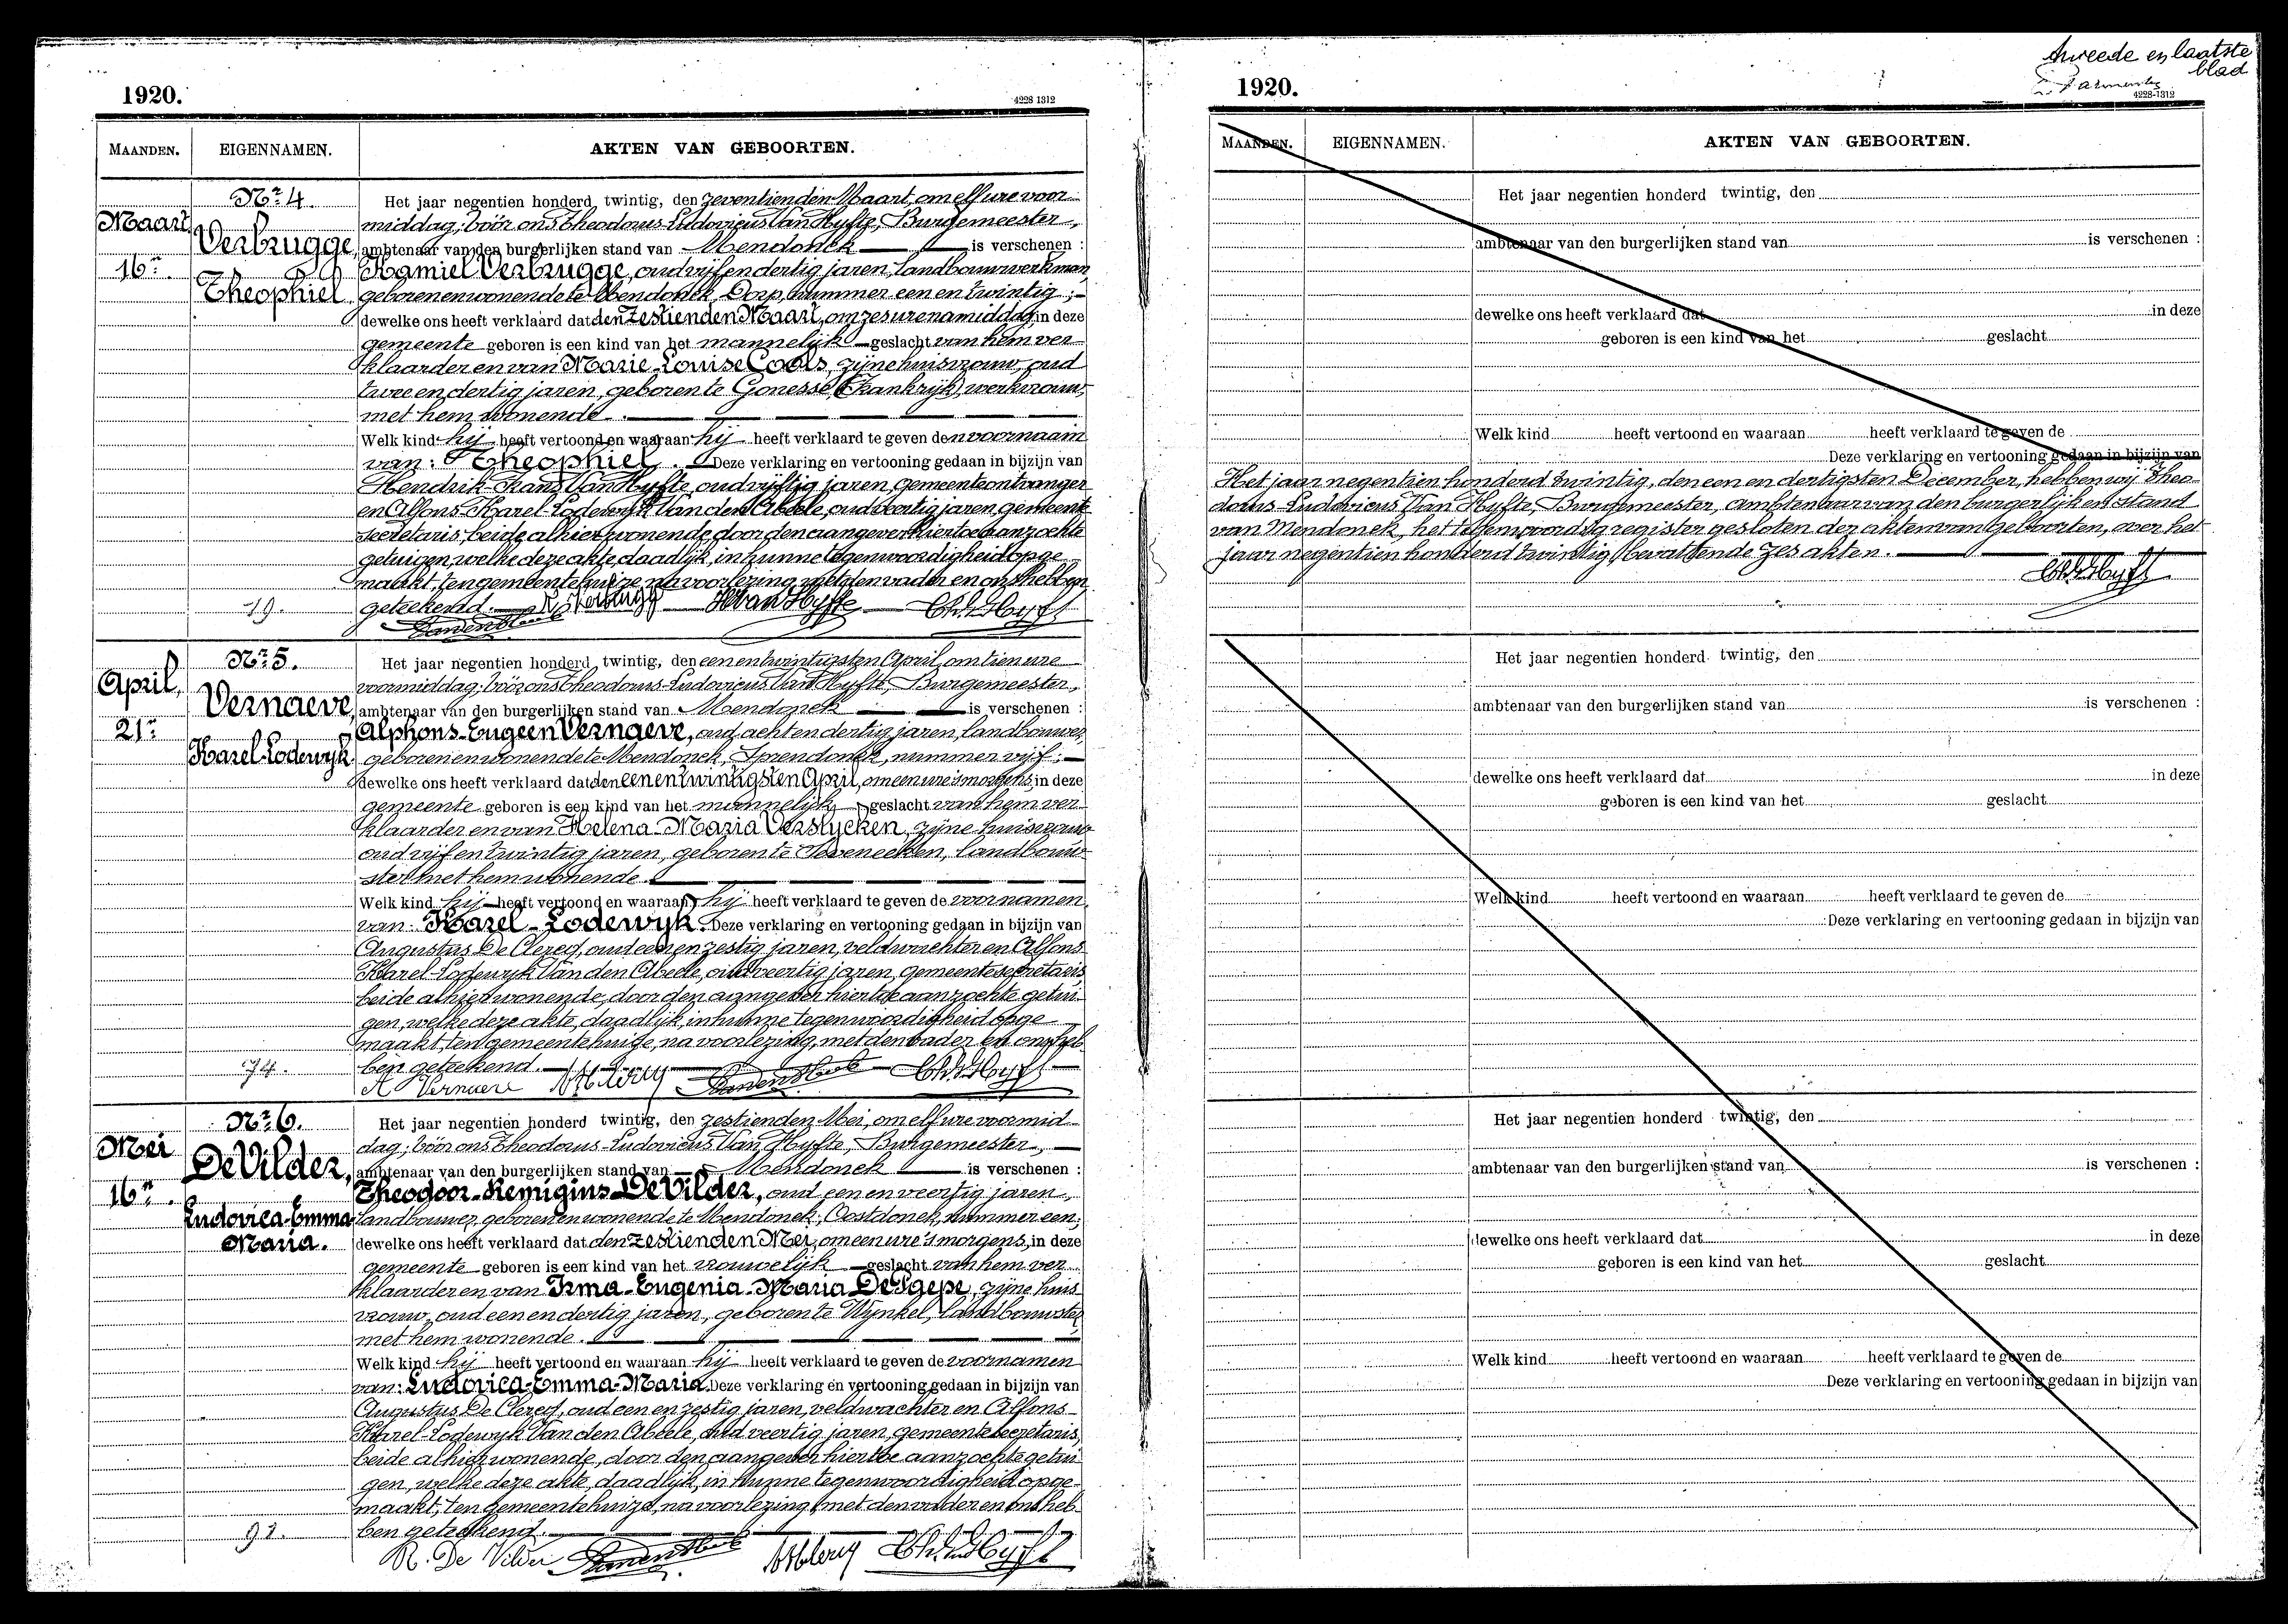 1920.
4228 1312
MAANDEN.
EIGENNAMEN.
AKTEN VAN GEBOORTEN.
Maart
16n.
Nr 4.
Verbrugge,
Theophiel
19.
Het jaar negentien honderd twintig, den zeventienden Maart, om elf ure voor-
middag; vóór ons Theodorus-Ludovicus Van Hyfte, Burgemeester,
ambtenaar van den burgerlijken stand van Mendonck is verschenen :
Kamiel Verbrugge, oud vijf en dertig jaren, landbouwwerkman,
geboren en wonende te Mendonck, Dorp, nummer een en twintig ;
dewelke ons heeft verklaard dat den zestienden Maart, om zes ure namiddag, in deze
gemeente geboren is een kind van het mannelijk geslacht van hem ver-
klaarder en van Marie-Louise Cools, zijne huisvrouw, oud
twee en dertig jaren, geboren te Gonesse (Frankrijk), werkvrouw,
met hem wonende.
Welk kind hij heeft vertoond en waaraan hij heeft verklaard te geven den voornaam
van: Theophiel. Deze verklaring en vertooning gedaan in bijzijn van
Hendrik-Frans Van Hyfte, oud vijftig jaren, gemeenteontvanger
en Alfons-Karel-Lodewyk Van den Abeele, oud veertig jaren, gemeente-
secretaris, beide alhier wonende, door den aangever hiertoe aanzochte
getuigen, welke deze akte, daadlijk, in hunne tegenwoordigheid opge-
maakt, ten gemeentehuize, na voorlezing, met den vader en ons hebben
geteekend. K Verbrugge H Van Hyfte
April,
21n
Nr 5.
Vernaeve,
Karel-Lodewyk
74.
Het jaar negentien honderd twintig, den een en twintigsten April, om tien ure
voormiddag; vóór ons Theodorus-Ludovicus Van Hyfte, Burgemeester,
ambtenaar van den burgerlijken stand van Mendonck is verschenen :
Alphons-Eugeen Vernaeve, oud acht en dertig jaren, landbouwer,
geboren en wonende te Mendonck, Sprendonck, nummer vijf ;
dewelke ons heeft verklaard dat den een en twintigsten April, om een ure 's morgens, in deze
gemeente geboren is een kind van het mannelijk geslacht van hem ver-
klaarder en van Helena-Maria Verslycken, zijne huisvrouw
oud vijf en twintig jaren, geboren te Seveneecken, landbouw-
ster met hem wonende.
Welk kind hij heeft vertoond en waaraan hij heeft verklaard te geven de voornamen
van: Karel-Lodewyk. Deze verklaring en vertooning gedaan in bijzijn van
Augustus De Clercq, oud een en zestig jaren, veldwachter en Alfons-
Karel-Lodewyk Van den Abeele, oud veertig jaren, gemeentesecretaris,
beide alhier wonende, door den aangever hiertoe aanzochte getui-
gen, welke deze akte, daadlijk, in hunne tegenwoordigheid opge-
maakt, ten gemeentehuize, na voorlezing, met den vader en ons heb-
ben geteekend.
A Vernaeve
Mei
16n.
Nr 6.
De Vilder,
Ludovica-Emma-
Maria.
92.
Het jaar negentien honderd twintig, den zestienden Mei, om elf ure voormid-
dag; vóór ons Theodorus-Ludovicus Van Hyfte, Burgemeester,
ambtenaar van den burgerlijken stand van Mendonck is verschenen :
Theodoor-Remigius De Vilder, oud een en veertig jaren,
landbouwer, geboren en wonende te Mendonck, Oostdonck, nummer een;
dewelke ons heeft verklaard dat den zestienden Mei, om een ure 's morgens, in deze
gemeente geboren is een kind van het vrouwelijk geslacht van hem ver-
klaarder en van Irma-Eugenia-Maria De Sgepe, zijne huis-
vrouw, oud een en dertig jaren, geboren te Wynkel, landbouwster,
met hem wonende.
Welk kind hij heeft vertoond en waaraan hij heeft verklaard te geven de voornamen
van: Ludovica-Emma-Maria. Deze verklaring en vertooning gedaan in bijzijn van
Augustus De Clercq, oud een en zestig jaren, veldwachter en Alfons-
Karel-Lodewyk Van den Abeele, oud veertig jaren, gemeentesecretaris,
beide alhier wonende, door den aangever hiertoe aanzochte getui-
gen, welke deze akte, daadlijk, in hunne tegenwoordigheid opge-
maakt, ten gemeentehuize, na voorlezing, met den vader en ons heb-
ben geteekend.
R. De Vilder
tweede en laatste
blad
1920.
4228-1312
MAANDEN.
EIGENNAMEN.
AKTEN VAN GEBOORTEN.
Het jaar negentien honderd twintig, den
ambtenaar van den burgerlijken stand van is verschenen :
dewelke ons heeft verklaard dat in deze
geboren is een kind van het geslacht
Welk kind heeft vertoond en waaraan heeft verklaard te geven de
Deze verklaring en vertooning gedaan in bijzijn van
Het jaar negentien honderd twintig, den een en dertigsten December, hebben wij Theo-
dorus-Ludovicus Van Hyfte, Burgemeester, ambtenaar van den burgerlijken stand
van Mendonck, het tegenwoordig register gesloten der akten van geboorten, over het
jaar negentien honderd twintig, bevattende zes akten.
Het jaar negentien honderd twintig, den
ambtenaar van den burgerlijken stand van is verschenen :
dewelke ons heeft verklaard dat in deze
geboren is een kind van het geslacht
Welk kind heeft vertoond en waaraan heeft verklaard te geven de
Deze verklaring en vertooning gedaan in bijzijn van
Het jaar negentien honderd twintig, den
ambtenaar van den burgerlijken stand van is verschenen :
dewelke ons heeft verklaard dat in deze
geboren is een kind van het geslacht
Welk kind heeft vertoond en waaraan heeft verklaard te geven de
Deze verklaring en vertooning gedaan in bijzijn van